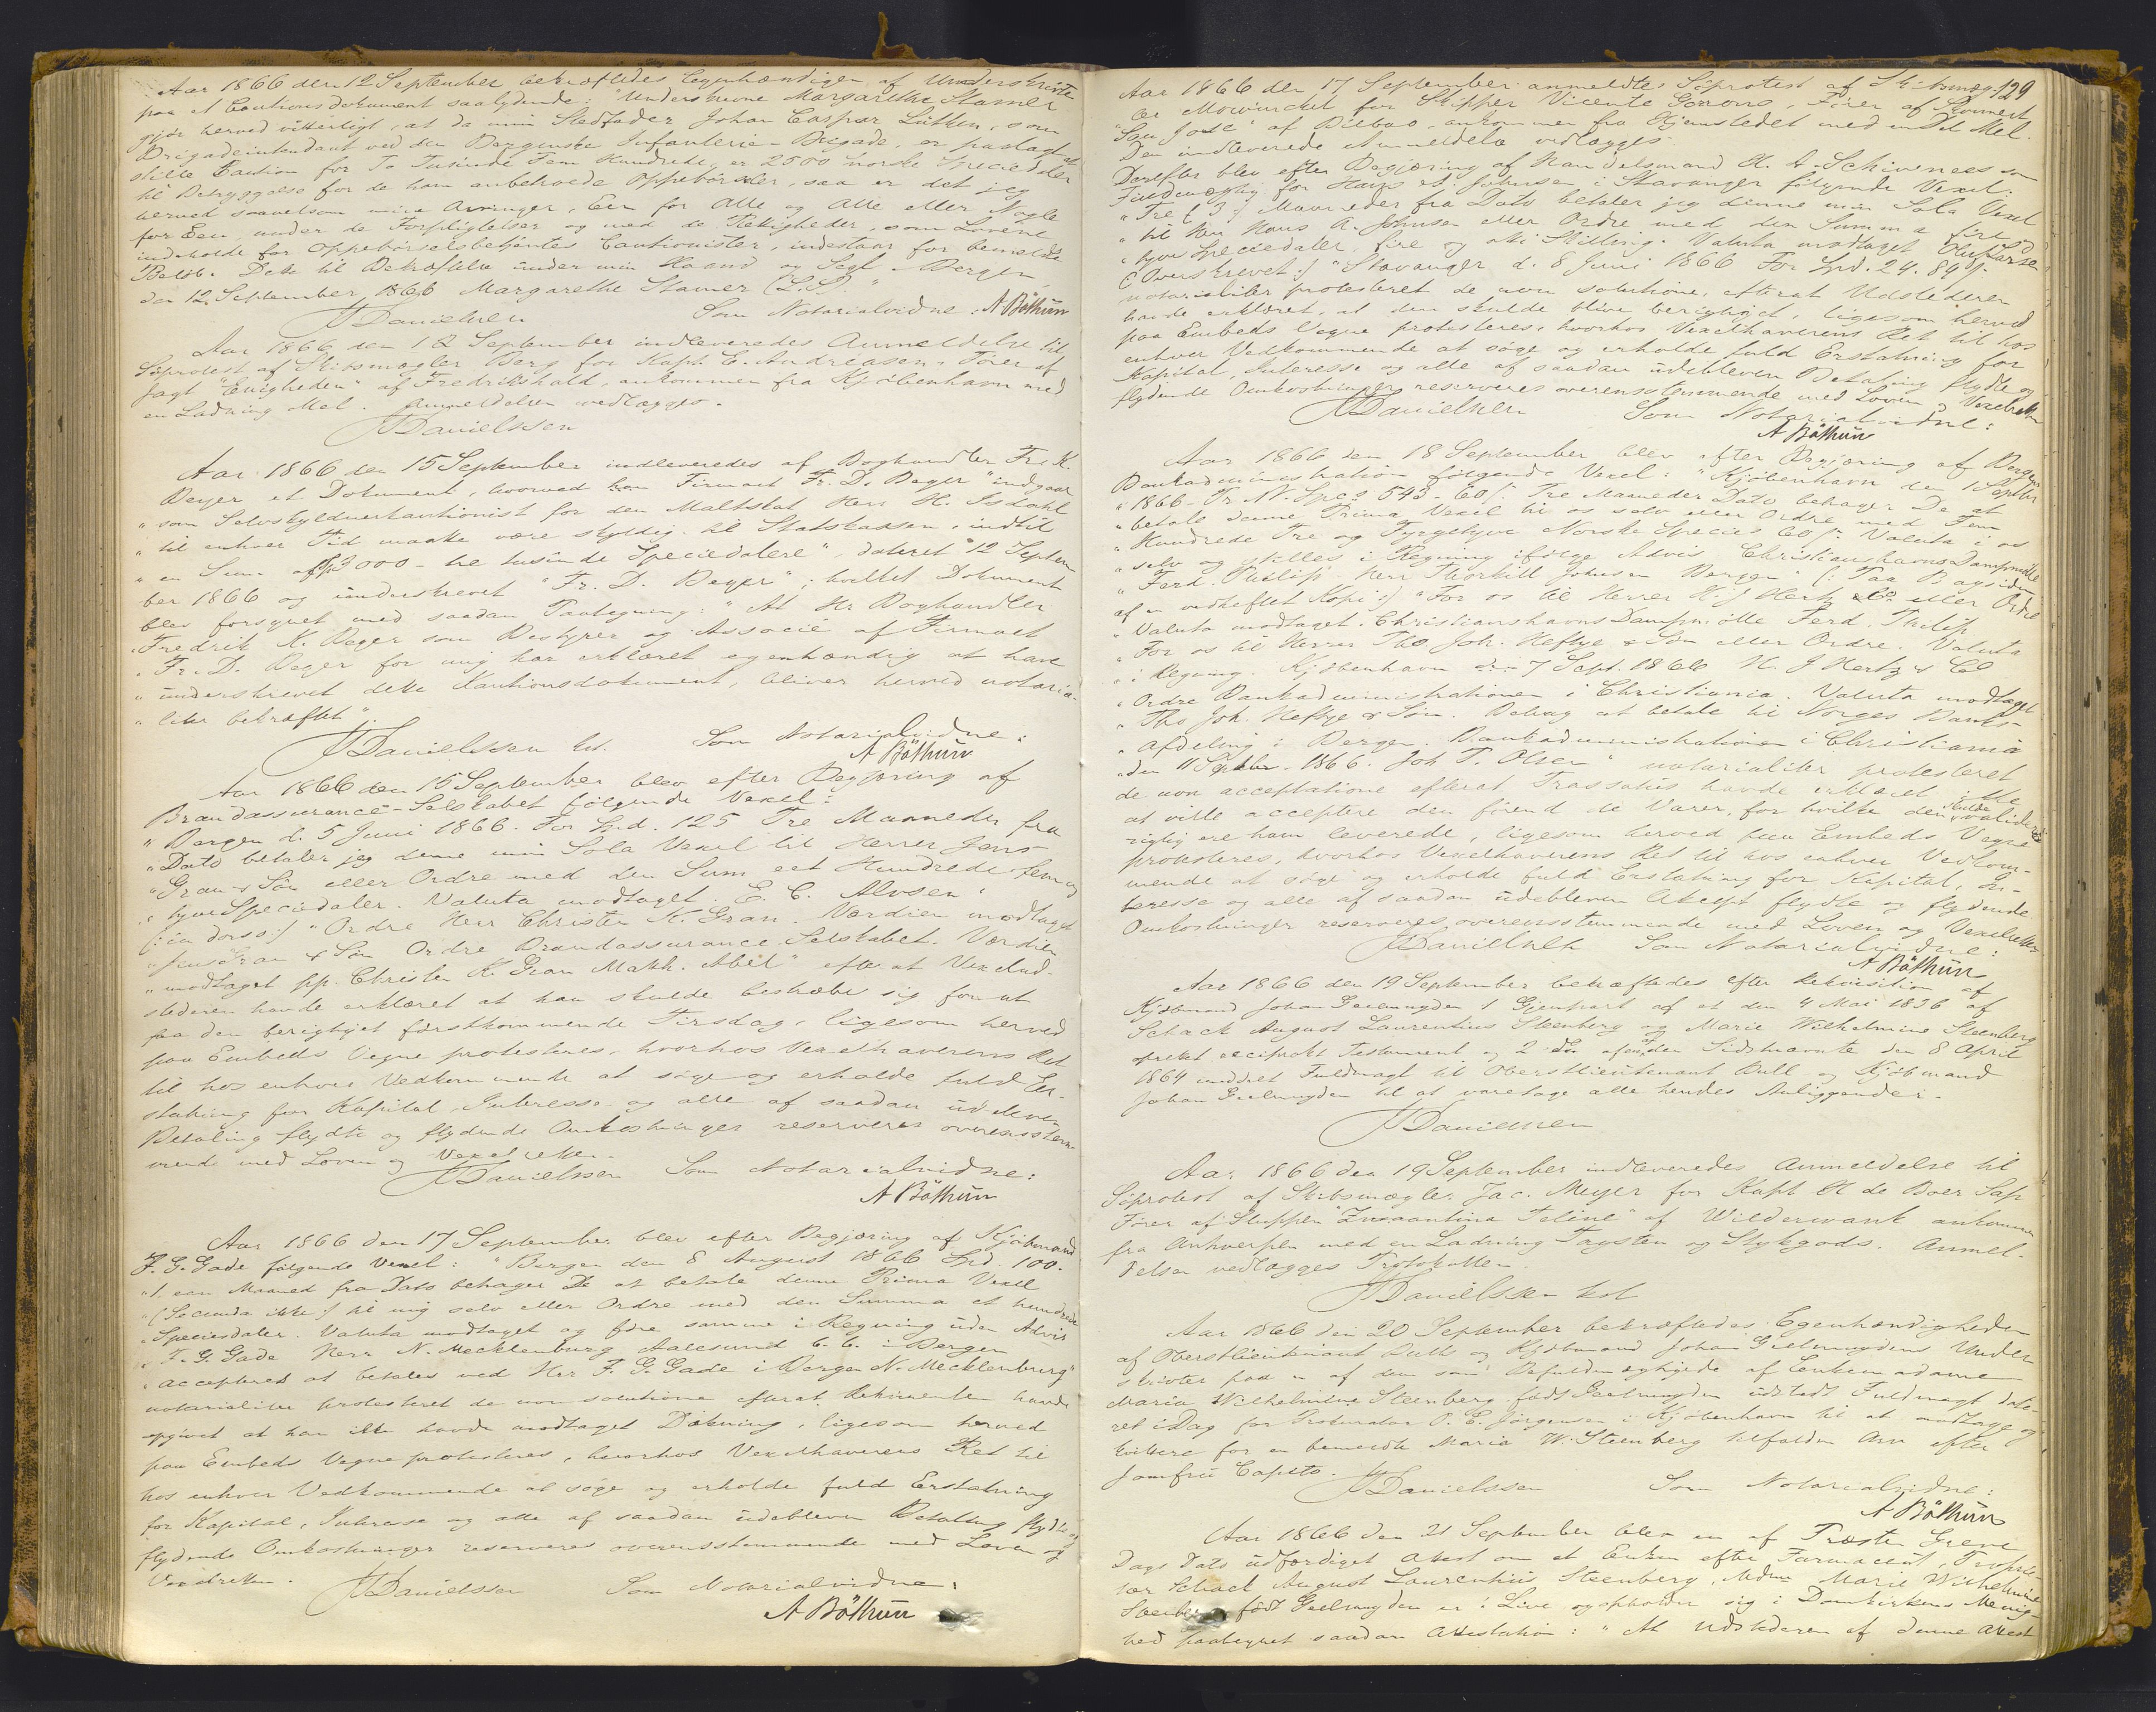 Aar 1866 den 12 September bekræftedes Egenhændigen af Underskrivte
paa et Cautionsdokument saalydende: "Underskrevne Margarethe Stamer
gjør herved vitterligt, at da min Stedfader Johan Caspar Lütken, som
Brigadeintendant ved den Bergenske Infanterie-Brigade, er paalagt at
stille Caution for To Tusinde Fem Hundrede, er 2500 norske Speciedaler
til Betryggelse for de ham anbetroede Oppebørsler, saa er det jeg
herved saavelsom mine Arvinger, Een for Alle og Alle eller Nogle
for Een under de Forpligtelser og med de Rettigheder, som Lovene
indeholde for Oppebørselsbetjentes Cautionister, indestaar for bemeldte
Beløb. Dette til Bekræftelse under min Haand og Segl. Bergen
den 12 September 1866 Margarethe Stamer (L.S.)"
JJDanielssen Som Notarialvidne: A Bøthun
Aar 1866 den 12 September indleveredes Anmeldelse til
Søprotest af Skibsmægler Berg for Kapt. C. Andreasen, Fører af
Jagt "Enigheden" af Fredrikshald, ankommen fra Kjøbenhavn med
en Ladning Mel. Anmeldelsen vedlægges.
JJDanielssen
Aar 1866 den 15 September indleveredes af Boghandler Fr. K.
Beyer et Dokument, hvorved Firmaet Fr. D. Beyer "indgaar
"som Selvskyldnerkautionist for den Maltskat Herr H. Isdahl
"til enhver Tid maatte være skyldig til Statskassen, indtil
"en Sum af 3000 - tre tusinde Speciedalere", dateret 12 Septem
ber 1866 og underskrevet "Fr. D. Beyer"; hvilket Dokument
blev forsynet med saadan Paategning: "At Hr Boghandler
"Fredrik K. Beyer som Bestyrer og Associé af Firmaet
"Fr. D. Beyer for mig har erklæret egenhændig at have
"underskrevet dette Kautionsdokument, bliver herved notaria-
"liter bekræftet".
JJDanielssen kst. Som Notarialvidne:
A Bøthun
Aar 1866 den 15 September blev efter Begjæring af
Brandassurance-Selskabet følgende Vexel:
"Bergen d. 5 Juni 1866. For Spd. 125 Tre Maaneder fra
"Dato betaler jeg denne min Sola Vexel til Herrer Jens
"Gran & Søn eller Ordre med den Sum eet Hundrede fem og
"tyve Speciedaler. Valuta modtaget E. C. Alvsen"
(: in dorso :) "Ordre Herr Christen K. Gran. Værdien modtaget
"Jens Gran & Søn Ordre Brandassurance Selskabet. Værdien
"modtaget pp. Christen K. Gran Math. Abel" efterat Vexelud-
stederen havde erklæret at han skulde bestræbe sig for at
faa den berigtiget førstkommende Tirsdag, ligesom herved
paa Embeds Vegne protesteres, hvorhos Vexelhaverens Ret
til hos enhver Vedkommende at søge og erholde fuld Er-
statning for Kapital, Interesse og alle af saadan udebleven
Betaling flydte og flydende Omkostninger reserveres overensstem-
mende med Loven og Vexelretten.
JJDanielssen Som Notarialvidne:
A Bøthun
Aar 1866 den 17 September blev efter Begjæring af Kjøbmand
F. G. Gade følgende Vexel: "Bergen den 8 August 1866 Spd. 100.
"1, een Maaned fra Dato behager De at betale denne Prima Vexel
"(Secunda ikke) til mig selv eller Ordre med den Summa et hundrede
"Speciesdaler. Valuta modtaget og føre samme i Regning uden Advis
"F. G. Gade Herr N. Mecklenburg Aalesund C. C. i Bergen
"accepteret at betales ved Herr F. G. Gade i Bergen N. Mecklenburg"
notarialiter protesteret de non solutione efterat Rekvirenten havde
opgivet at han ikke havde modtaget Dækning, ligesom herved
paa Embeds Vegne protesteres, hvorhos Vexelhaverens Ret til
hos enhver Vedkommende at søge og erholde fuld Erstatning
for Kapital, Interesse og alle af saadan udebleven Betaling flydte og
flydende Omkostninger reserveres overensstemmende med Loven og
Vexelretten. JJDanielssen Som Notarialvidne:
A Bøthun
129
Aar 1866 den 17 September anmeldtes Søprotest af Skibsmæg-
ler Mowinckel for Skipper Vicente Fører af Skonnert
"San José" af Bilbao ankommen fra Hjemstedet med en Del Mel.
Den indleverede Anmeldelse vedlægges.
Derefter blev efter Begjæring af Handelsmand H. A. Schiveness som
Fuldmægtig for Hans A. Johnsen i Stavanger følgende Vexel:
"Tre (3) Maaneder fra Dato betaler jeg denne min Sola Vexel
"til Herr Hans A. Johnsen eller Ordre med den Summa fire og
"tyve Speciedaler fire og otti Skilling. Valuta modtaget Oluf Larsen
(: Overskrevet :) "Stavanger d. 8 Juni 1866 For Spd. 24. 84 ß."
notarialiter protesteret de non solutione, efterat Udstederen
havde erklæret, at den skulde blive berigtiget, ligesom herved
paa Embeds Vegne protesteres, hvorhos Vexelhaverens Ret til hos
enhver Vedkommende at søge og erholde fuld Erstatning for
Kapital, Interesse og alle af saadan udebleven Betaling flydte og
flydende Omkostninger reserveres overensstemmende med Loven og Vexelretten
JJDanielssen Som Notarialvidne:
A Bøthun
Aar 1866 den 18 September blev efter Begjæring af Bergens
Bankadministration følgende Vexel: "Kjøbenhavn den 1 Septbr
"1866 - Pr. N. Spcs 543 - 60 ß. Tre Maaneder Dato behager De at
"betale denne Prima Vexel til os selv eller Ordre med Fem
"Hundrede Tre og Fyrgetyve Norske Species 60 ß. Valuta i os
"selv og stilles i Regning ifølge Advis Christianshavns Dampmølle
"Ferd. Philip Herr Thorkild Johnsen Bergen" (: Paa Bagsiden
af en vedheftet Kopi :) "For os til Herrer H. J. Hertz & Co eller Ordre
"Valuta modtaget. Christianshavns Dampmølle Ferd. Philip
"For os til Herrer Tho Joh. Heftye & Søn eller Ordre. Valuta
"i Regning. Kjøbenhavn den 7 Sept. 1866 H. J. Hertz & Co
"Ordre Bankadministrationen i Christiania. Valuta modtaget
"Tho Joh. Heftye & Søn. Behag at betale til Norges Banks
"Afdeling i Bergen. Bankadministrationen i Christiania
"den 11 Septbr. 1866. Joh T. Olsen" notarialiter protesteret
de non acceptatione efterat Trassatus havde erklæret ikke
at ville acceptere den førend de Varer, for hvilke den skulde validere
rigtig ere ham leverede, ligesom herved paa Embeds Vegne
protesteres, hvorhos Vexelhaverens Ret til hos enhver Vedkom-
mende at søge og erholde fuld Erstatning for Kapital, In-
teresse og alle af saadan udebleven Accept flydte og flydende
Omkostninger reserveres overensstemmende med Loven og Vexelretten
JJDanielssen Som Notarialvidne:
A Bøthun
Aar 1866 den 19 September bekræftedes efter Rekvisition af
Kjøbmand Johan Geelmuyden 1 Gjenpart af et den 4 Mai 1836 af
Schack August Laurentius Steenberg og Marie Wilhelmine Steenberg
oprettet reciprokt Testament og 2 Do af en af den Sidstnævnte den 8 April
1864 meddelt Fuldmagt til Oberstlieutenant Bull og Kjøbmand
Johan Geelmuyden til at varetage alle hendes Anliggender.
JJDanielssen
Aar 1866 den 19 September indleveredes Anmeldelse til
Søprotest af Skibsmægler Jac. Meyer for Kapt H de Boer Sap
Fører af Sluppen Teline" af Wilderwank ankommen
fra Antwerpen med en Ladning Tagsten og Stykgods. Anmel-
delsen vedlægges Protokollen.
JJDanielssen kst
Aar 1866 den 20 September bekræftedes Egenhændigheden
af Oberstlieutenant Bulls og Kjøbmand Johan Geelmuydens Under-
skrivter paa en af dem som Befuldmægtigede af Enkemadame
Maria Wilhelmine Steenberg født Geelmuyden udstedt Fuldmagt date-
ret i Dag for Prokurator P. E. Jørgensen i Kjøbenhavn til at modtage og
kvittere for en bemeldte Maria W. Steenberg tilfalden Arv efter
Jomfru Capito. JJDanielssen Som Notarialvidne:
A Bøthun
Aar 1866 den 21 September blev en af Præsten Greve
Dags Dato udfærdiget Attest om at Enken efter Farmaceut, Proprie-
tær Schack August Laurentius Steenberg, Mdme Marie Wilhelmine
Steenberg født Geelmuyden er i Live og opholder sig i Domkirkens Menig-
hed paategnet saadan Attestation: "At Udstederen af denne Attest